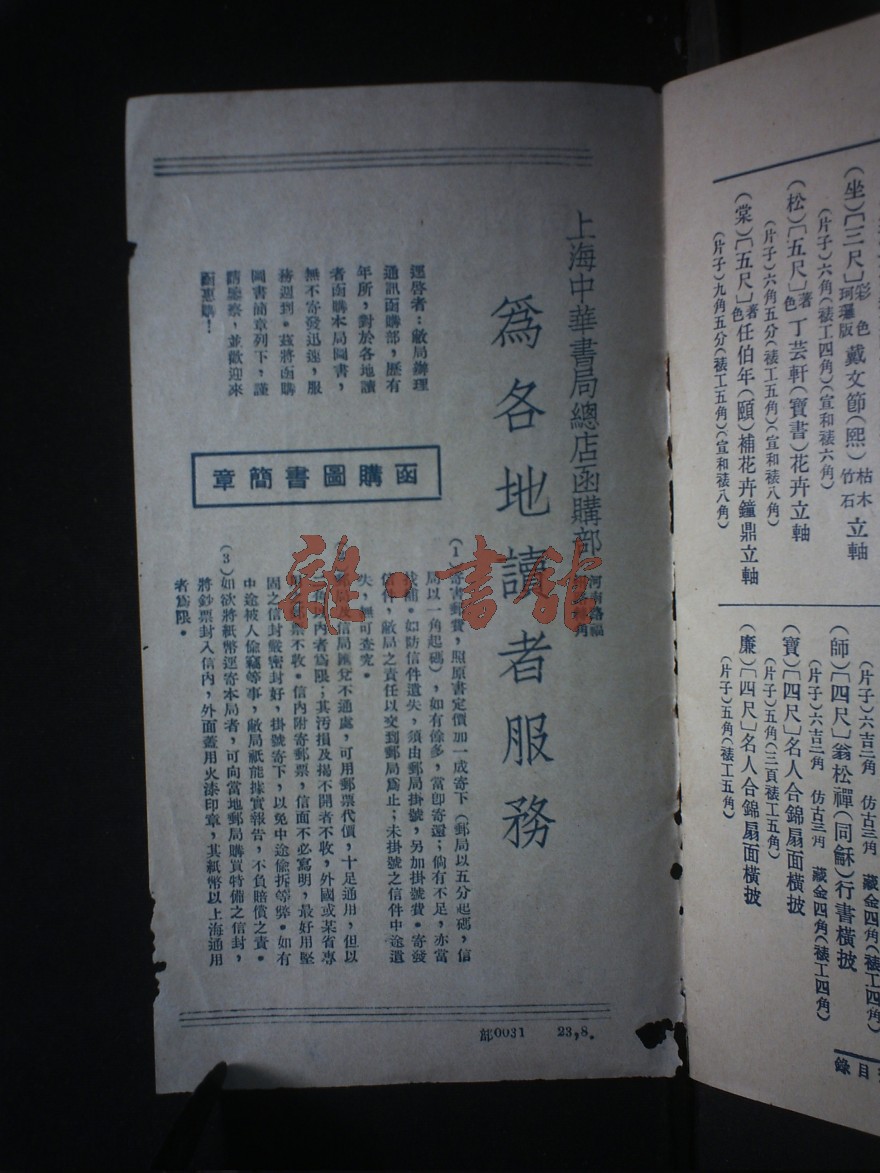 上海中華書局總店函購部
河南路福
角
爲各地讀者服務
逕啓者:敝局辦理
通訊函購部,歷有
年所,對於各地讀
者函購本局圖書,
無不寄發迅速,服
務週到。茲將函購
圖書簡章列下,謹
請鑒察,並歡迎來
函惠購!
函購圖書簡章
(1)寄書郵費,照原書定價加一成寄下(郵局以五分起碼,信
局以一角起碼),如有餘多,當卽寄還;倘有不足,亦當
補。如防信件遺失,須由郵局掛號,另加掛號費。寄發
信件,敝局之責任以交到郵局爲止;未掛號之信件中途遺
失,無可查究。
信局匯兌不通處,可用郵票代價,十足通用,但以
以內者爲限;其污損及揭不開者不收,外國或某省專
票不收。信內附寄郵票,信面不必寫明,最好用堅
固之信封嚴密封好,掛號寄下,以免中途偷拆等弊。如有
中途被人偷竊等事,敝局祇能據實報告,不負賠償之責。
(3)如欲將紙幣逕寄本局者,可向當地郵局購買特備之信封,
將鈔票封入信內,外面蓋用火漆印章,其紙幣以上海通用
者爲限。
雜·書館
部0031 23,8.
(坐)[三尺]彩色珂羅版戴文節(熙)枯木竹石立軸
(片子)六角(裱工四角)(宣和裱六角)
(松)[五尺]著色丁芸軒(寶書)花卉立軸
(片子)六角五分(裱工五角)(宣和裱八角)
(棠)[五尺]著色任伯年(頤)補花卉鐘鼎立軸
(片子)九角五分(裱工五角)(宣和裱八角)
(片子)六吉二角 仿古三角 藏金四角(裱工四角)
(師)[四尺]翁松禪(同龢)行書橫披
(片子)六吉二角 仿古三角 藏金四角(裱工四角)
(寶)[四尺]名人合錦扇面橫披
(片子)五角(三頁裱工五角)
(廉)[四尺]名人合錦扇面橫披
(片子)五角(裱工五角)
目錄